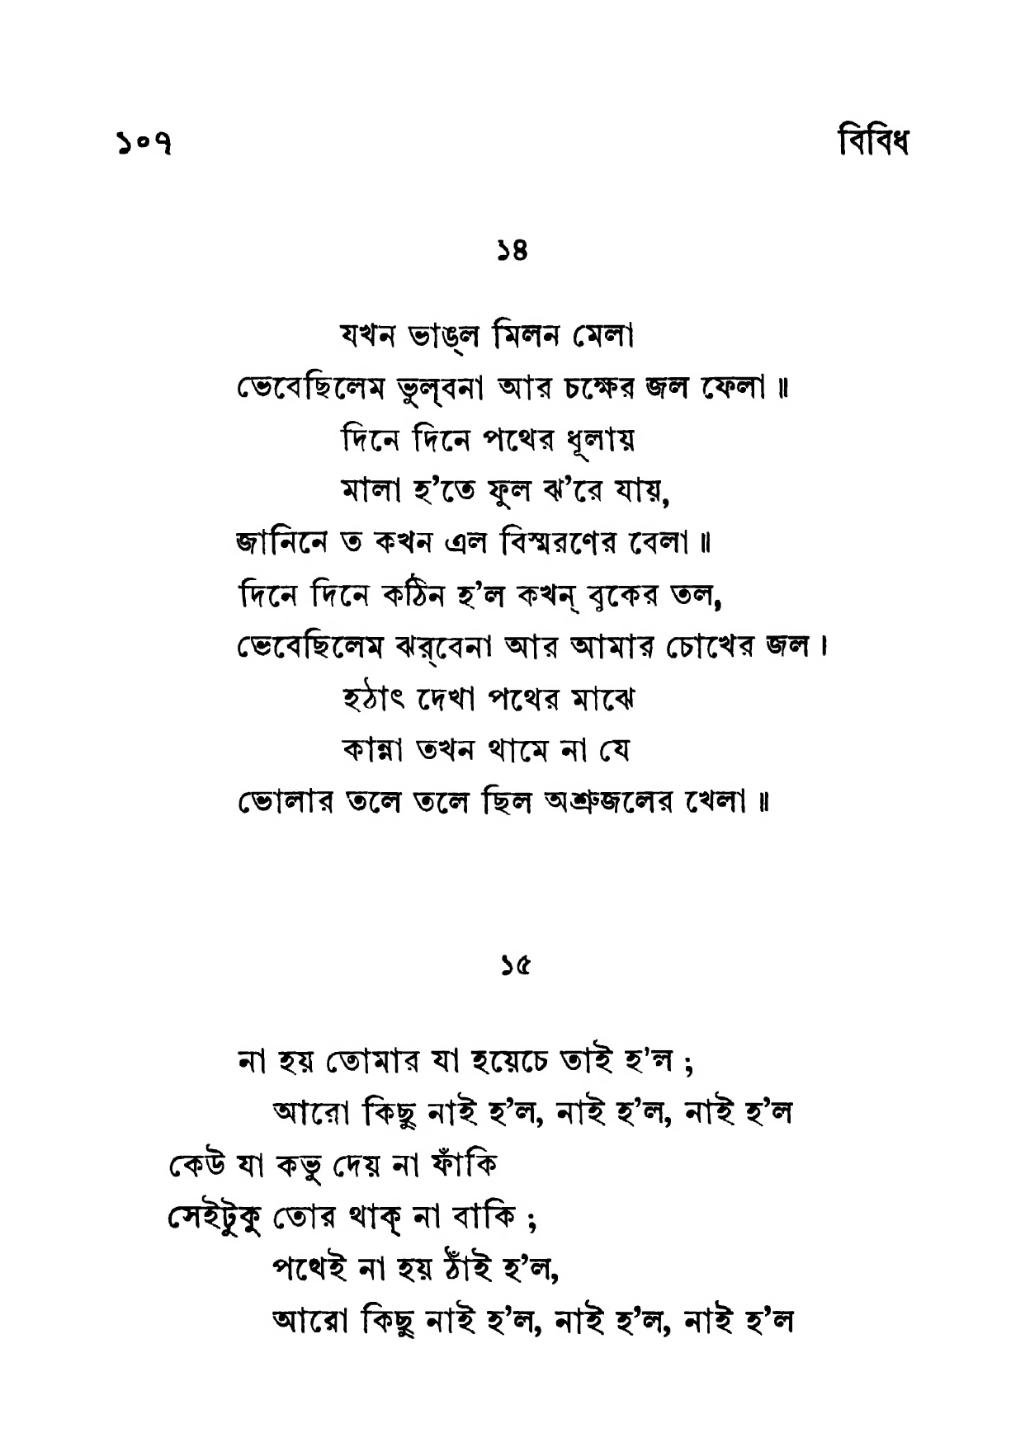 ১০৭ বিবিধ
১৪
যখন ভাঙ্ল মিলন মেলা
ভেবেছিলেম ভুল্‌বনা আর চক্ষের জল ফেলা॥
দিনে দিনে পথের ধূলায়
মালা হ’তে ফুল ঝ’রে যায়,
জানিনে ত কখন এল বিস্মরণের বেলা॥
দিনে দিনে কঠিন হ’ল কখন্ বুকের তল,
ভেবেছিলেম ঝর্‌বেনা আর আমার চোখের জল।
হঠাৎ দেখা পথের মাঝে
কান্না তখন থামে না যে
ভোলার তলে তলে ছিল অশ্রুজলের খেলা॥
১৫
না হয় তোমার যা হয়েচে তাই হ’ল ;
আরো কিছু নাই হ’ল, নাই হ’ল, নাই হ’ল
কেউ যা কভু দেয় না ফাঁকি
সেইটুকু তোর থাক্ না বাকি ;
পথেই না হয় ঠাঁই হ’ল,
আরো কিছু নাই হ’ল, নাই হ’ল, নাই হ’ল